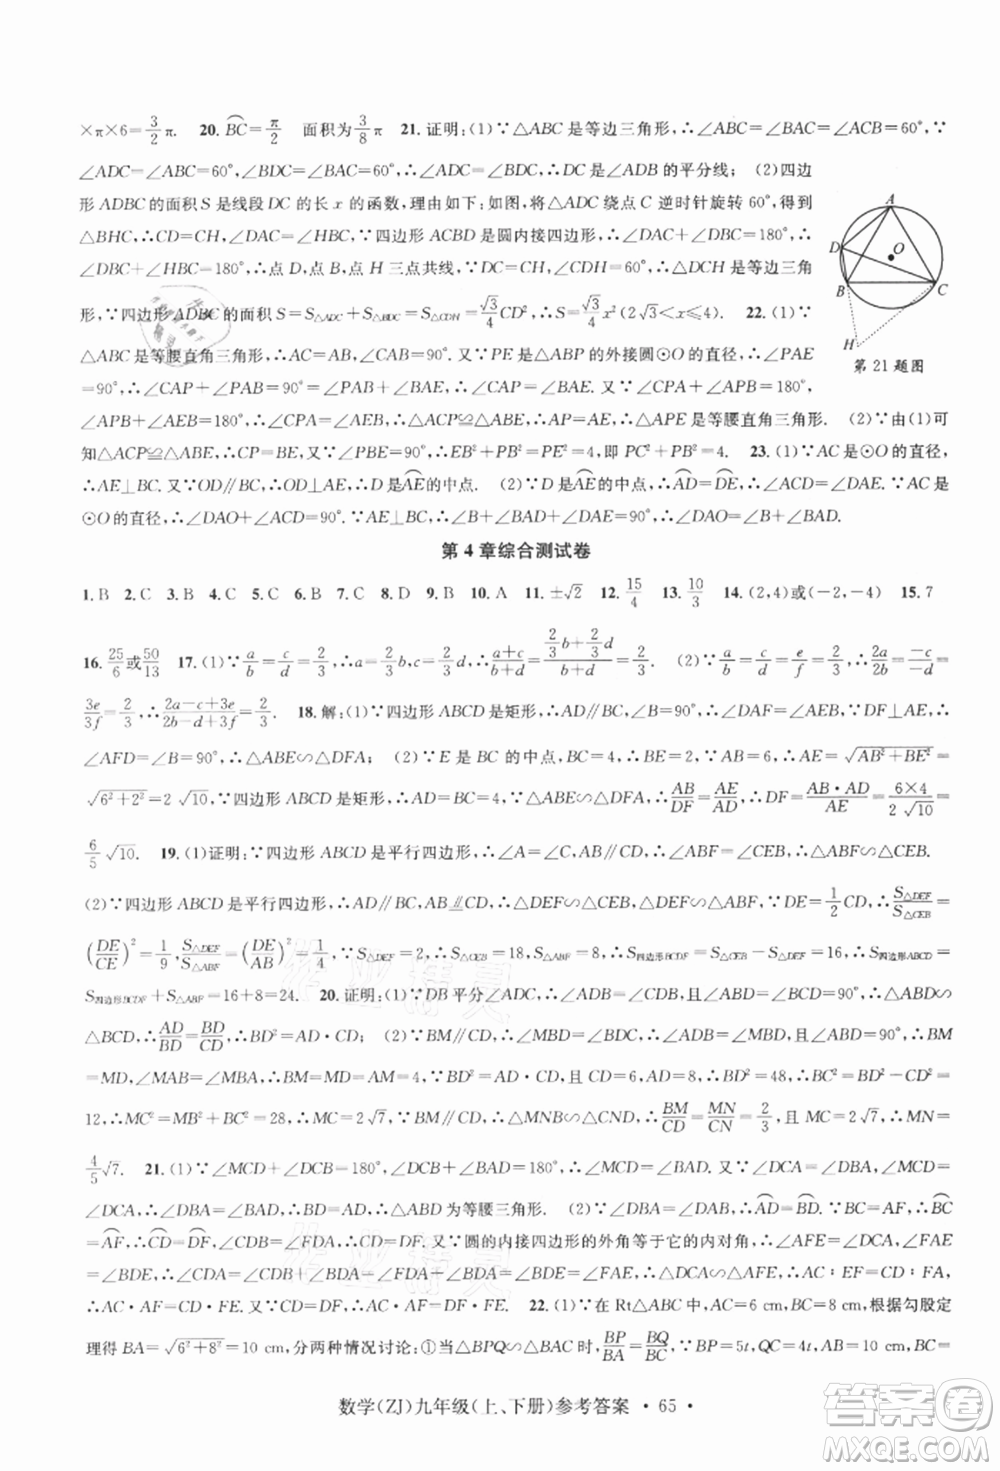 ×π×6=3/2π. 20. BC⌒=π/2 面积为3/8π 21. 证明:(1)∵△ABC是等边三角形,∴∠ABC=∠BAC=∠ACB=60°,∵
∠ADC=∠ABC=60°,∠BDC=∠BAC=60°,∴∠ADC=∠BDC,∴DC是∠ADB的平分线. (2)四边
形ADBC的面积S是线段DC的长x的函数,理由如下:如图,将△ADC绕点C逆时针旋转60°,得到
△BHC,∴CD=CH,∠DAC=∠HBC,∵四边形ACBD是圆内接四边形,∴∠DAC+∠DBC=180°,
∴∠DBC+∠HBC=180°,∴点D,点B,点H三点共线,∵∠CDH=60°,∴△CDH是等边三角
形,∵四边形ADBC的面积S=S△ADC+S△BDC=S△CDH=√3/4CD²,∴S=√3/4x²(2√3<x≤4). 22. (1)∵△ABC
是等腰直角三角形,∴∠C=∠ABC=45°,∴∠PEA=∠ABC=45°.又∵PE是△ABP的外接圆⊙O的直径,∴∠PAE
=90°,∴∠CAP+∠PAB=∠PAB+∠BAE=90°,∴∠CAP=∠BAE,∵四边形APBE是圆内接四边形,∴
∠APB+∠AEB=180°.又∵∠CPA+∠APB=180°,∴∠CPA=∠AEB.又∵AC=AB,
∴△APC≌△ABE,∴AP=AE,∴△APE是等腰直角三角形. (2)∵由(1)可
知△APC≌△ABE,∴PC=EB.又∵∠PBE=90°,∴EB²+PB²=PE²=4,即PC²+PB²=4. 23. (1)∵AC是⊙O的直径,
∴AE⊥BC.又∵OD∥BC,∴AE⊥OD,∴D是AE⌒的中点. (2)∵D是AE⌒的中点,∴AD⌒=DE⌒,∴∠DCE=∠ACD.∵AC是
⊙O的直径,∴∠DAO+∠ACD=90°.又∵AE⊥BC,∴∠B+∠BAE=90°,∴∠DAO=∠B+∠BAD.
A
D
O
B
C
H
第21题图
第4章综合测试卷
1. B 2. C 3. B 4. C 5. C 6. B 7. D 8. D 9. B 10. A 11. ±√2 12. 15/4 13. 10/3 14. (2,4)或(-2,-4) 15. 7
16. 25/6或50/13 17. (1)∵a/b=c/d=2/3,∴a=2/3b,c=2/3d,∴(a+c)/(b+d)=(2/3b+2/3d)/(b+d)=2/3. (2)∵a/b=c/d=e/f=2/3,∴2a/2b=-c/-d=
3e/3f=2/3,∴(2a-c+3e)/(2b-d+3f)=2/3. 18. 解:(1)∵四边形ABCD是矩形,∴AD∥BC,∠B=90°,∴∠DAF=∠AEB.∵DF⊥AE,∴
∠AFD=∠B=90°,∴△ABE∽△DFA. (2)∵E是BC的中点,BC=4,∴BE=2.∵AB=6,∴AE=√(AB²+BE²)=
√(6²+2²)=2√10.∵四边形ABCD是矩形,∴AD=BC=4,∵△ABE∽△DFA,∴AB/DF=AE/AD,∴DF=AB·AD/AE=6×4/2√10=
6/5√10. 19. (1)证明:∵四边形ABCD是平行四边形,∴∠A=∠C,AB∥CD,∴∠ABF=∠CEB,∴△ABF∽△CEB.
(2)∵四边形ABCD是平行四边形,∴AD∥BC,AB∥CD,∴△DEF∽△CEB,△DEF∽△ABF.∵DE=1/2CD,∴S△DEF/S△CEB=
(DE/CE)²=1/9,S△DEF/S△ABF=(DE/AB)²=1/4,∵S△DEF=2,∴S△CEB=18,S△ABF=8,∴S四边形BCDF=S△BCE-S△DEF=16,∴S四边形ABCD=
S四边形BCDF+S△ABF=16+8=24. 20. 证明:(1)∵DB平分∠ADC,∴∠ADB=∠CDB,且∠ABD=∠BCD=90°,∴△ABD∽
△BCD,∴AD/BD=BD/CD,∴BD²=AD·CD. (2)∵BM∥CD,∴∠MBD=∠BDC,∴∠ADB=∠MBD,且∠ABD=90°,∴BM=
MD,∠MAB=∠MBA,∴BM=MD=AM=4.∵BD²=AD·CD,且CD=6,AD=8,∴BD²=48,∴BC²=BD²-CD²=
12,∴MC²=MB²+BC²=28,∴MC=2√7,∵BM∥CD,∴△MNB∽△CND,∴BM/CD=MN/CN=2/3,且MC=2√7,∴MN=
4/5√7. 21. (1)∵∠MCD+∠DCB=180°,∠DCB+∠DAB=180°,∴∠MCD=∠DAB.又∵∠DCA=∠DBA,∠MCD=
∠DCA,∴∠DBA=∠DAB,∴△ABD为等腰三角形. (2)∵∠DBA=∠DAB,∴AD⌒=BD⌒.∵BC=AF,∴BC⌒
=AF⌒,∴CD⌒=DF⌒,∴CD=DF.又∵圆的内接四边形的外角等于它的内对角,∴∠AFE=∠ACD,∠FAE=
∠BDC,∴∠CDA=∠BDC=∠FAE,∴△CDA∽△FAE,∴CD/FA=AC/FE,即CD·EF=AC·AF.又∵CD=DF,∴
AC·AF=CD·FE. 22. (1)∵在Rt△ABC中,AC=6 cm,BC=8 cm,根据勾股定
理得BA=√(6²+8²)=10 cm,分两种情况讨论:①当△BPQ∽△BAC时,BP/BA=BQ/BC,∵BP=5t,QC=4t,
数学(ZJ)九年级(上、下册)参考答案 · 65 ·
答案圈
MXQE.COM